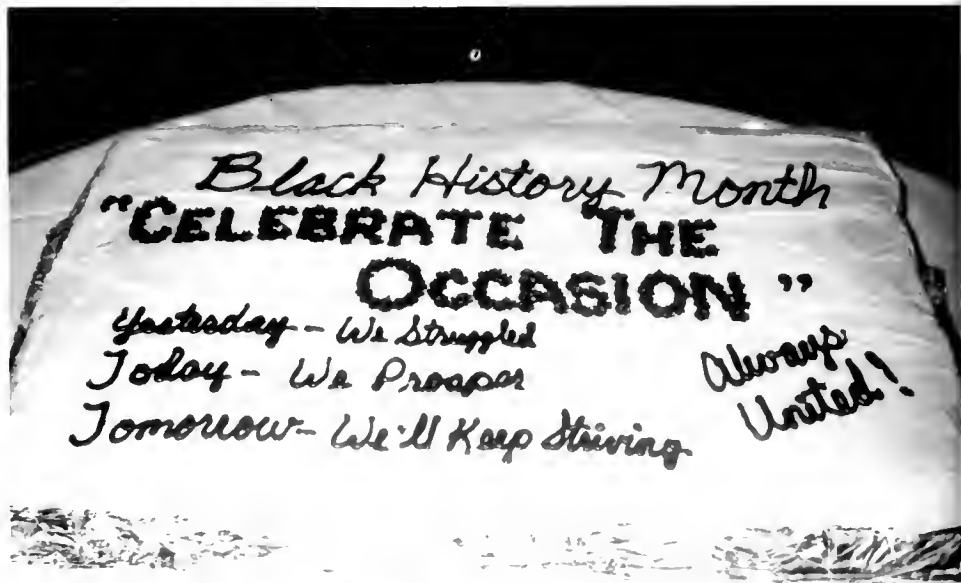 Black History Month
"CELEBRATE THE
OCCASION"
Yesterday - We Struggled
Today - We Prosper
Tomorrow - We'll Keep Striving
Always
United!